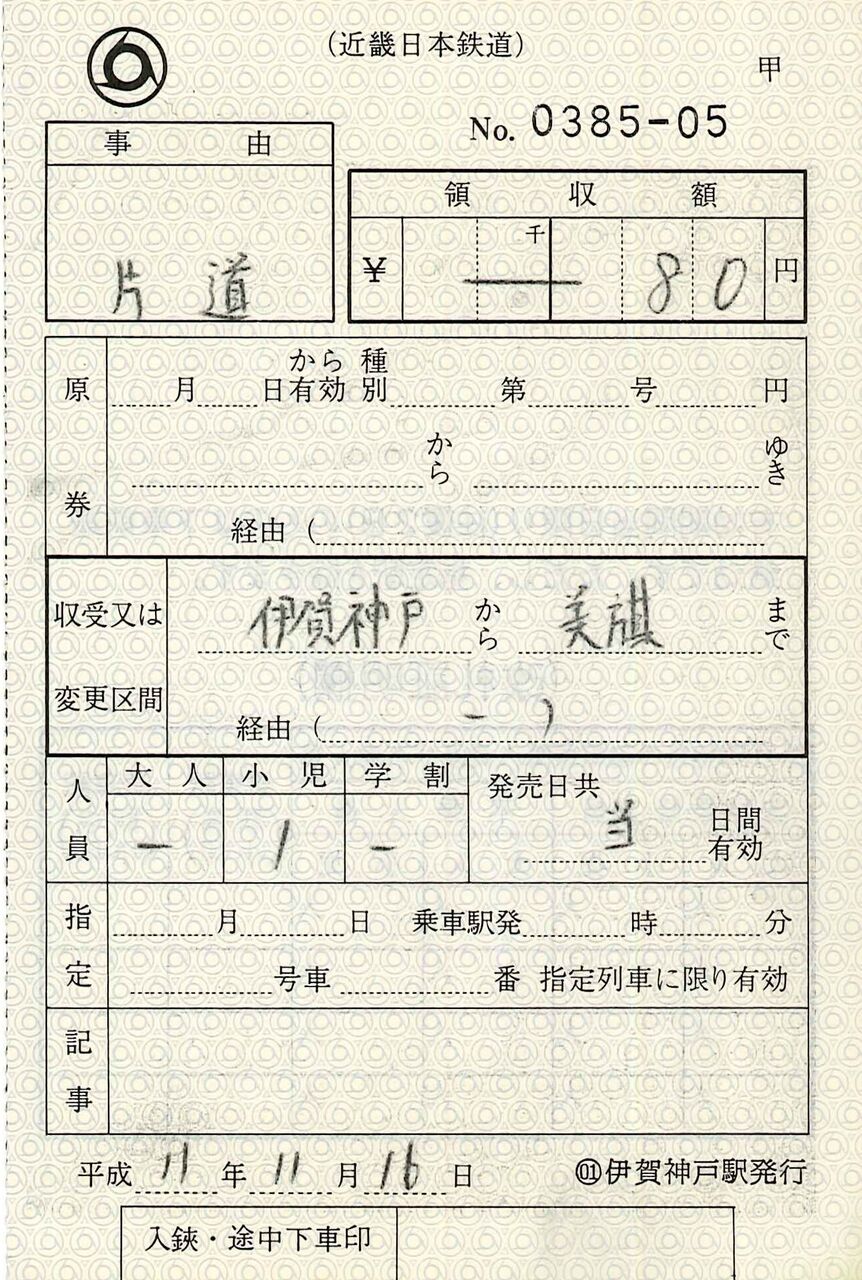 (近畿日本鉄道)
甲
No. 0385-05
事由
片道
領収額
千
¥ ― 80 円
原券
月 日から有効 種別 第 号 円
から ゆき
経由 (
収受又は変更区間
伊賀神戸 から 美旗 まで
経由 ( - )
人員
大人 小児 学割
- 1 -
発売日共 当 日間有効
指定
月 日 乗車駅発 時 分
号車 番 指定列車に限り有効
記事
平成 11 年 11 月 16 日
㉀伊賀神戸駅発行
入鋏・途中下車印